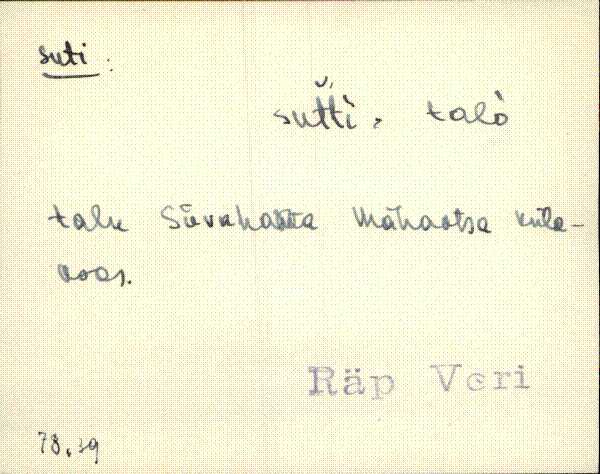 suti:
sutti. talo
talu Süvahavva Mähaotsa küla-
koos.
Räp Veri
78.39